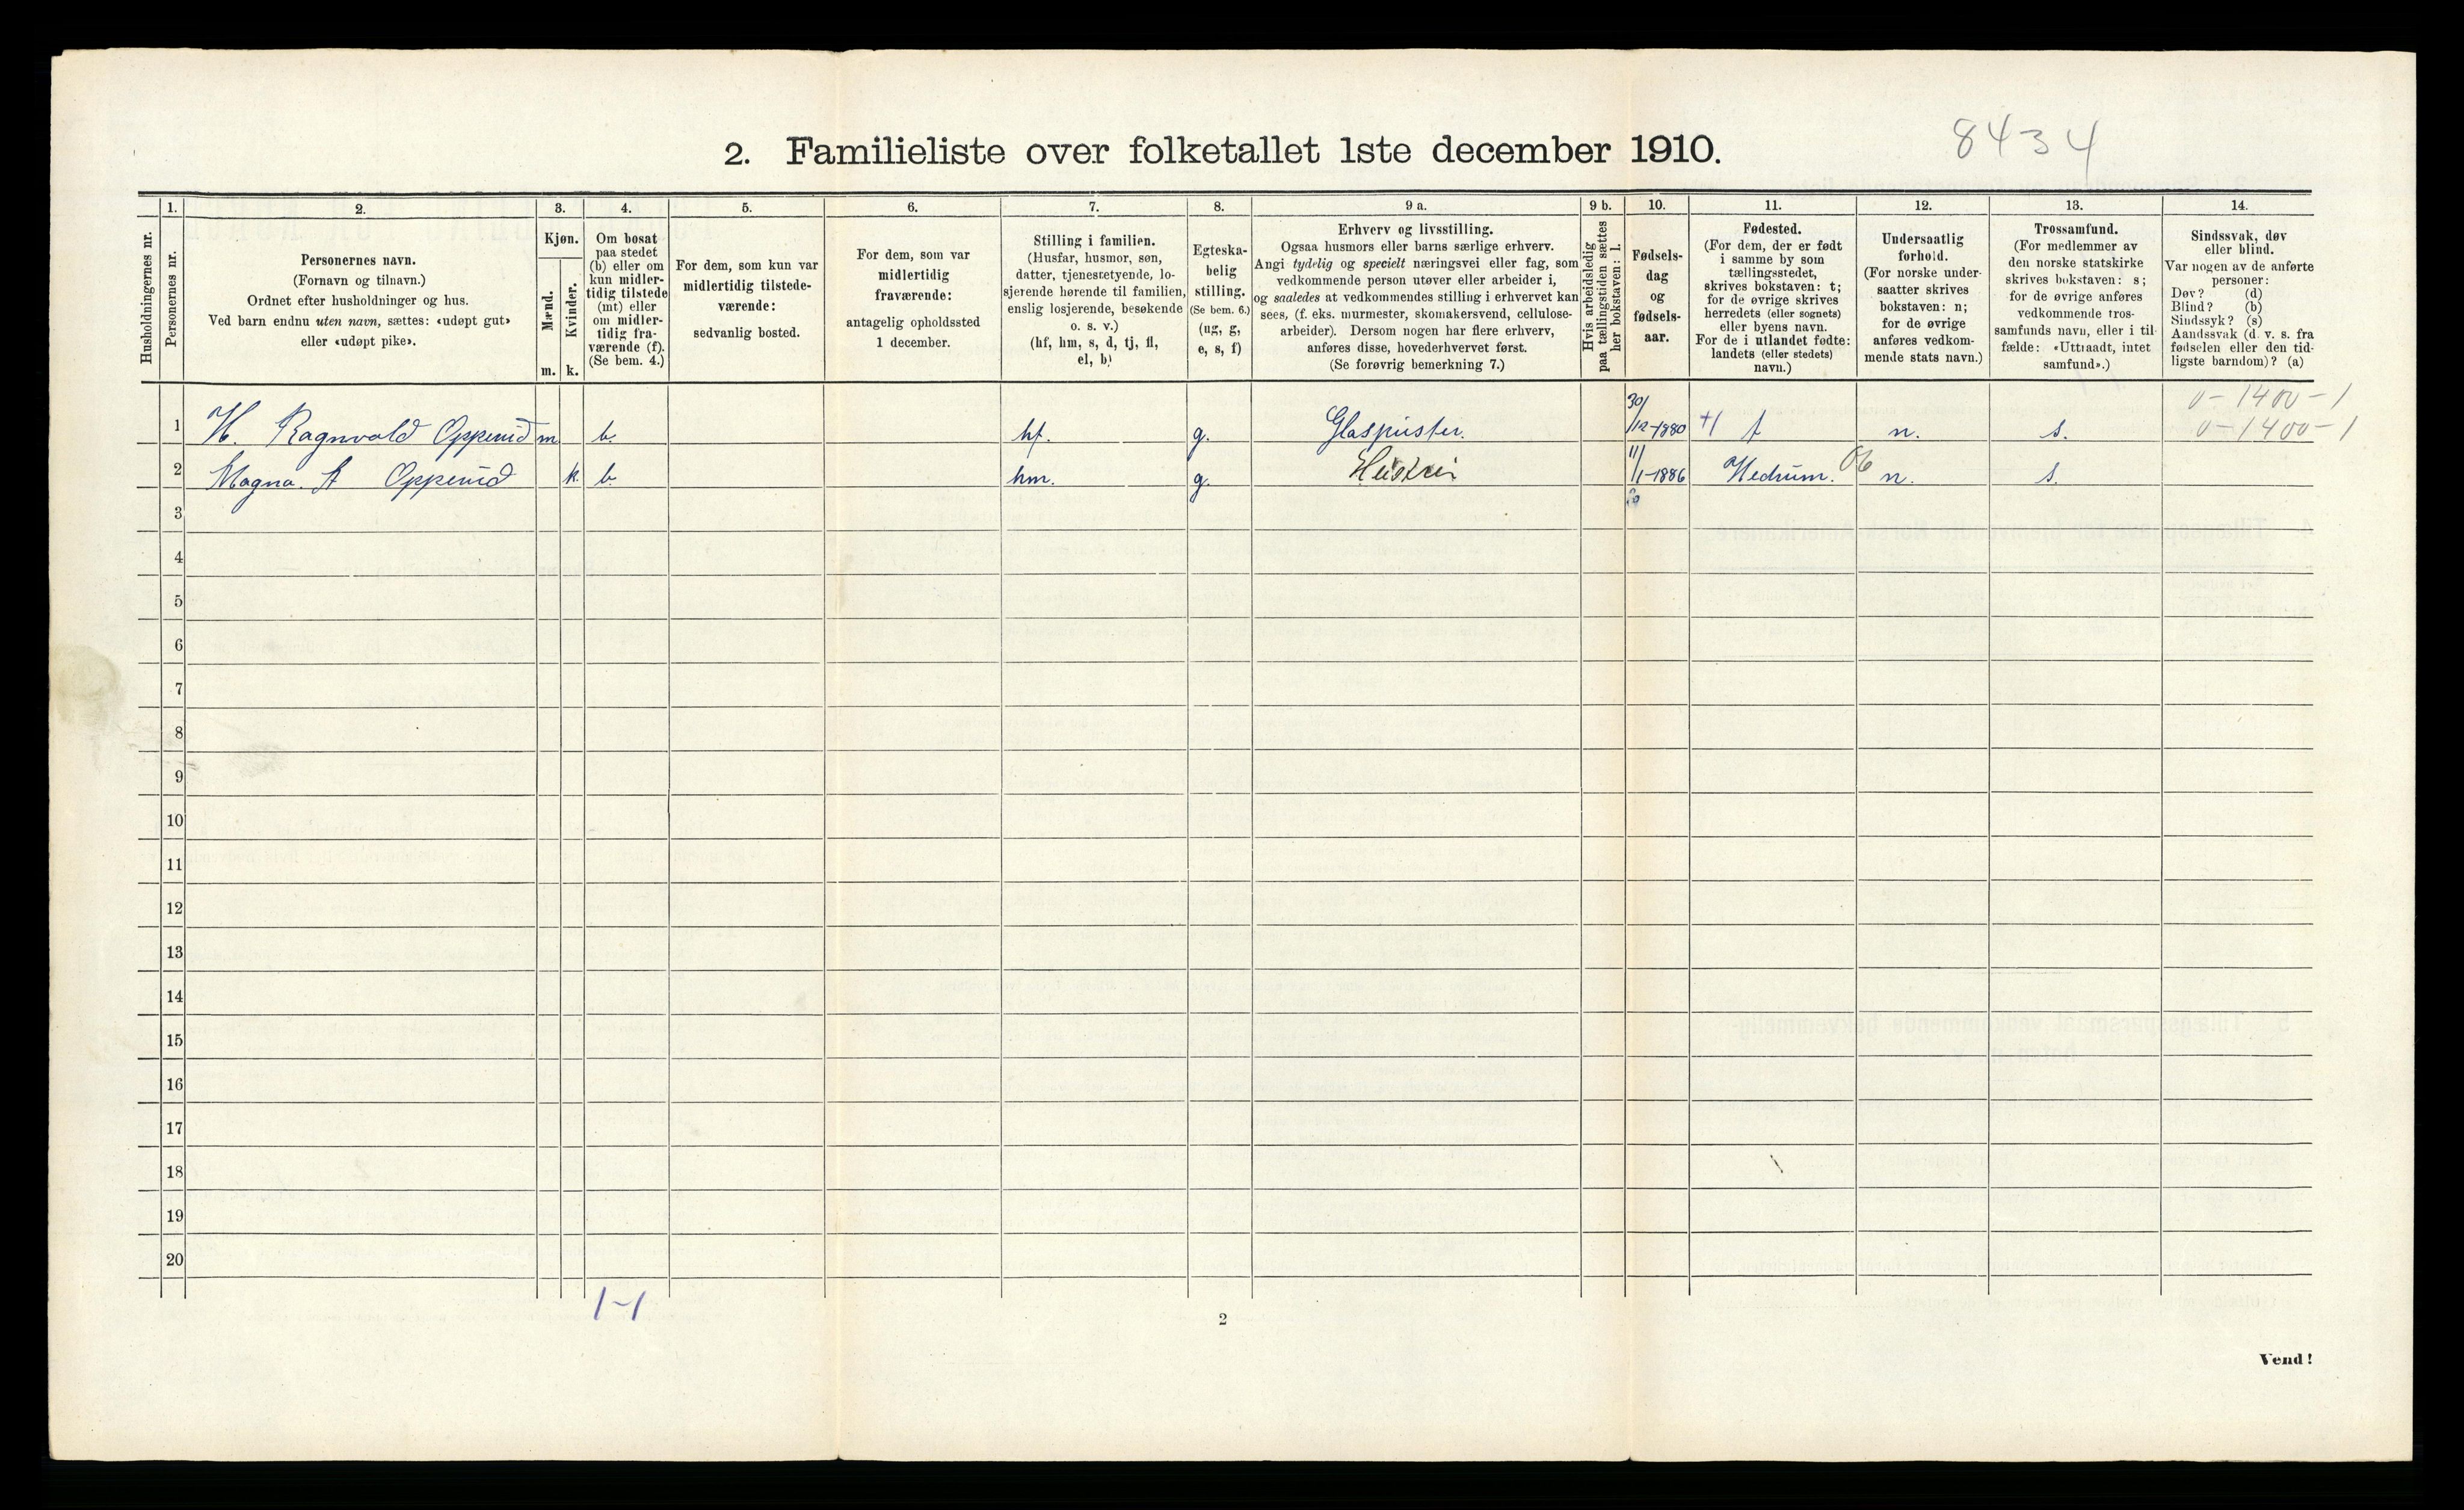 8434
2. Familieliste over folketallet 1ste december 1910.
Husholdningernes nr.
1.
Personernes nr.
2.
Personernes navn.
(Fornavn og tilnavn.)
Ordnet efter husholdninger og hus.
Ved barn endnu uten navn, sættes: «udøpt gut»
eller «udøpt pike».
3.
Kjøn.
Mænd.
m.
Kvinder.
k.
4.
Om bosat
paa stedet
(b) eller om
kun midler-
tidig tilstede
(mt) eller
om midler-
tidig fra-
værende (f).
(Se bem. 4.)
5.
For dem, som kun var
midlertidig tilstede-
værende:
sedvanlig bosted.
6.
For dem, som var
midlertidig
fraværende:
antagelig opholdssted
1 december.
7.
Stilling i familien.
(Husfar, husmor, søn,
datter, tjenestetyende, lo-
sjerende hørende til familien,
enslig losjerende, besøkende
o. s. v.)
(hf, hm, s, d, tj, fl,
el, b)
8.
Egteska-
belig
stilling.
(Se bem. 6.)
(ug, g,
e, s, f)
9 a.
Erhverv og livsstilling.
Ogsaa husmors eller barns særlige erhverv.
Angi tydelig og specielt næringsvei eller fag, som
vedkommende person utøver eller arbeider i,
og saaledes at vedkommendes stilling i erhvervet kan
sees, (f. eks. murmester, skomakersvend, cellulose-
arbeider). Dersom nogen har flere erhverv,
anføres disse, hovederhvervet først.
(Se forøvrig bemerkning 7.)
9 b.
Hvis arbeidsledig
paa tællingstiden sættes
her bokstaven: l.
10.
Fødsels-
dag
og
fødsels-
aar.
11.
Fødested.
(For dem, der er født
i samme by som
tællingsstedet,
skrives bokstaven: t;
for de øvrige skrives
herredets (eller sognets)
eller byens navn.
For de i utlandet fødte:
landets (eller stedets)
navn.)
12.
Undersaatlig
forhold.
(For norske under-
saatter skrives
bokstaven: n;
for de øvrige
anføres vedkom-
mende stats navn.)
13.
Trossamfund.
(For medlemmer av
den norske statskirke
skrives bokstaven: s;
for de øvrige anføres
vedkommende tros-
samfunds navn, eller i til-
fælde: «Uttraadt, intet
samfund».)
14.
Sindssvak, døv
eller blind.
Var nogen av de anførte
personer:
Døv? (d)
Blind? (b)
Sindssyk? (s)
Aandssvak (d. v. s. fra
fødselen eller den tid-
ligste barndom)? (a)
0-1400-1
1 H. Ragnvald Opperud m b. hf. g. Glaspuster. 30/12-1880 t n. s. 0-1400-1
2 Magna. A Opperud k. b. hm. g. Hustru 11/1-1886 Hedrum. 06 n. s.
3
4
5
6
7
8
9
10
11
12
13
14
15
16
17
18
19
20
1-1
2
Vend!